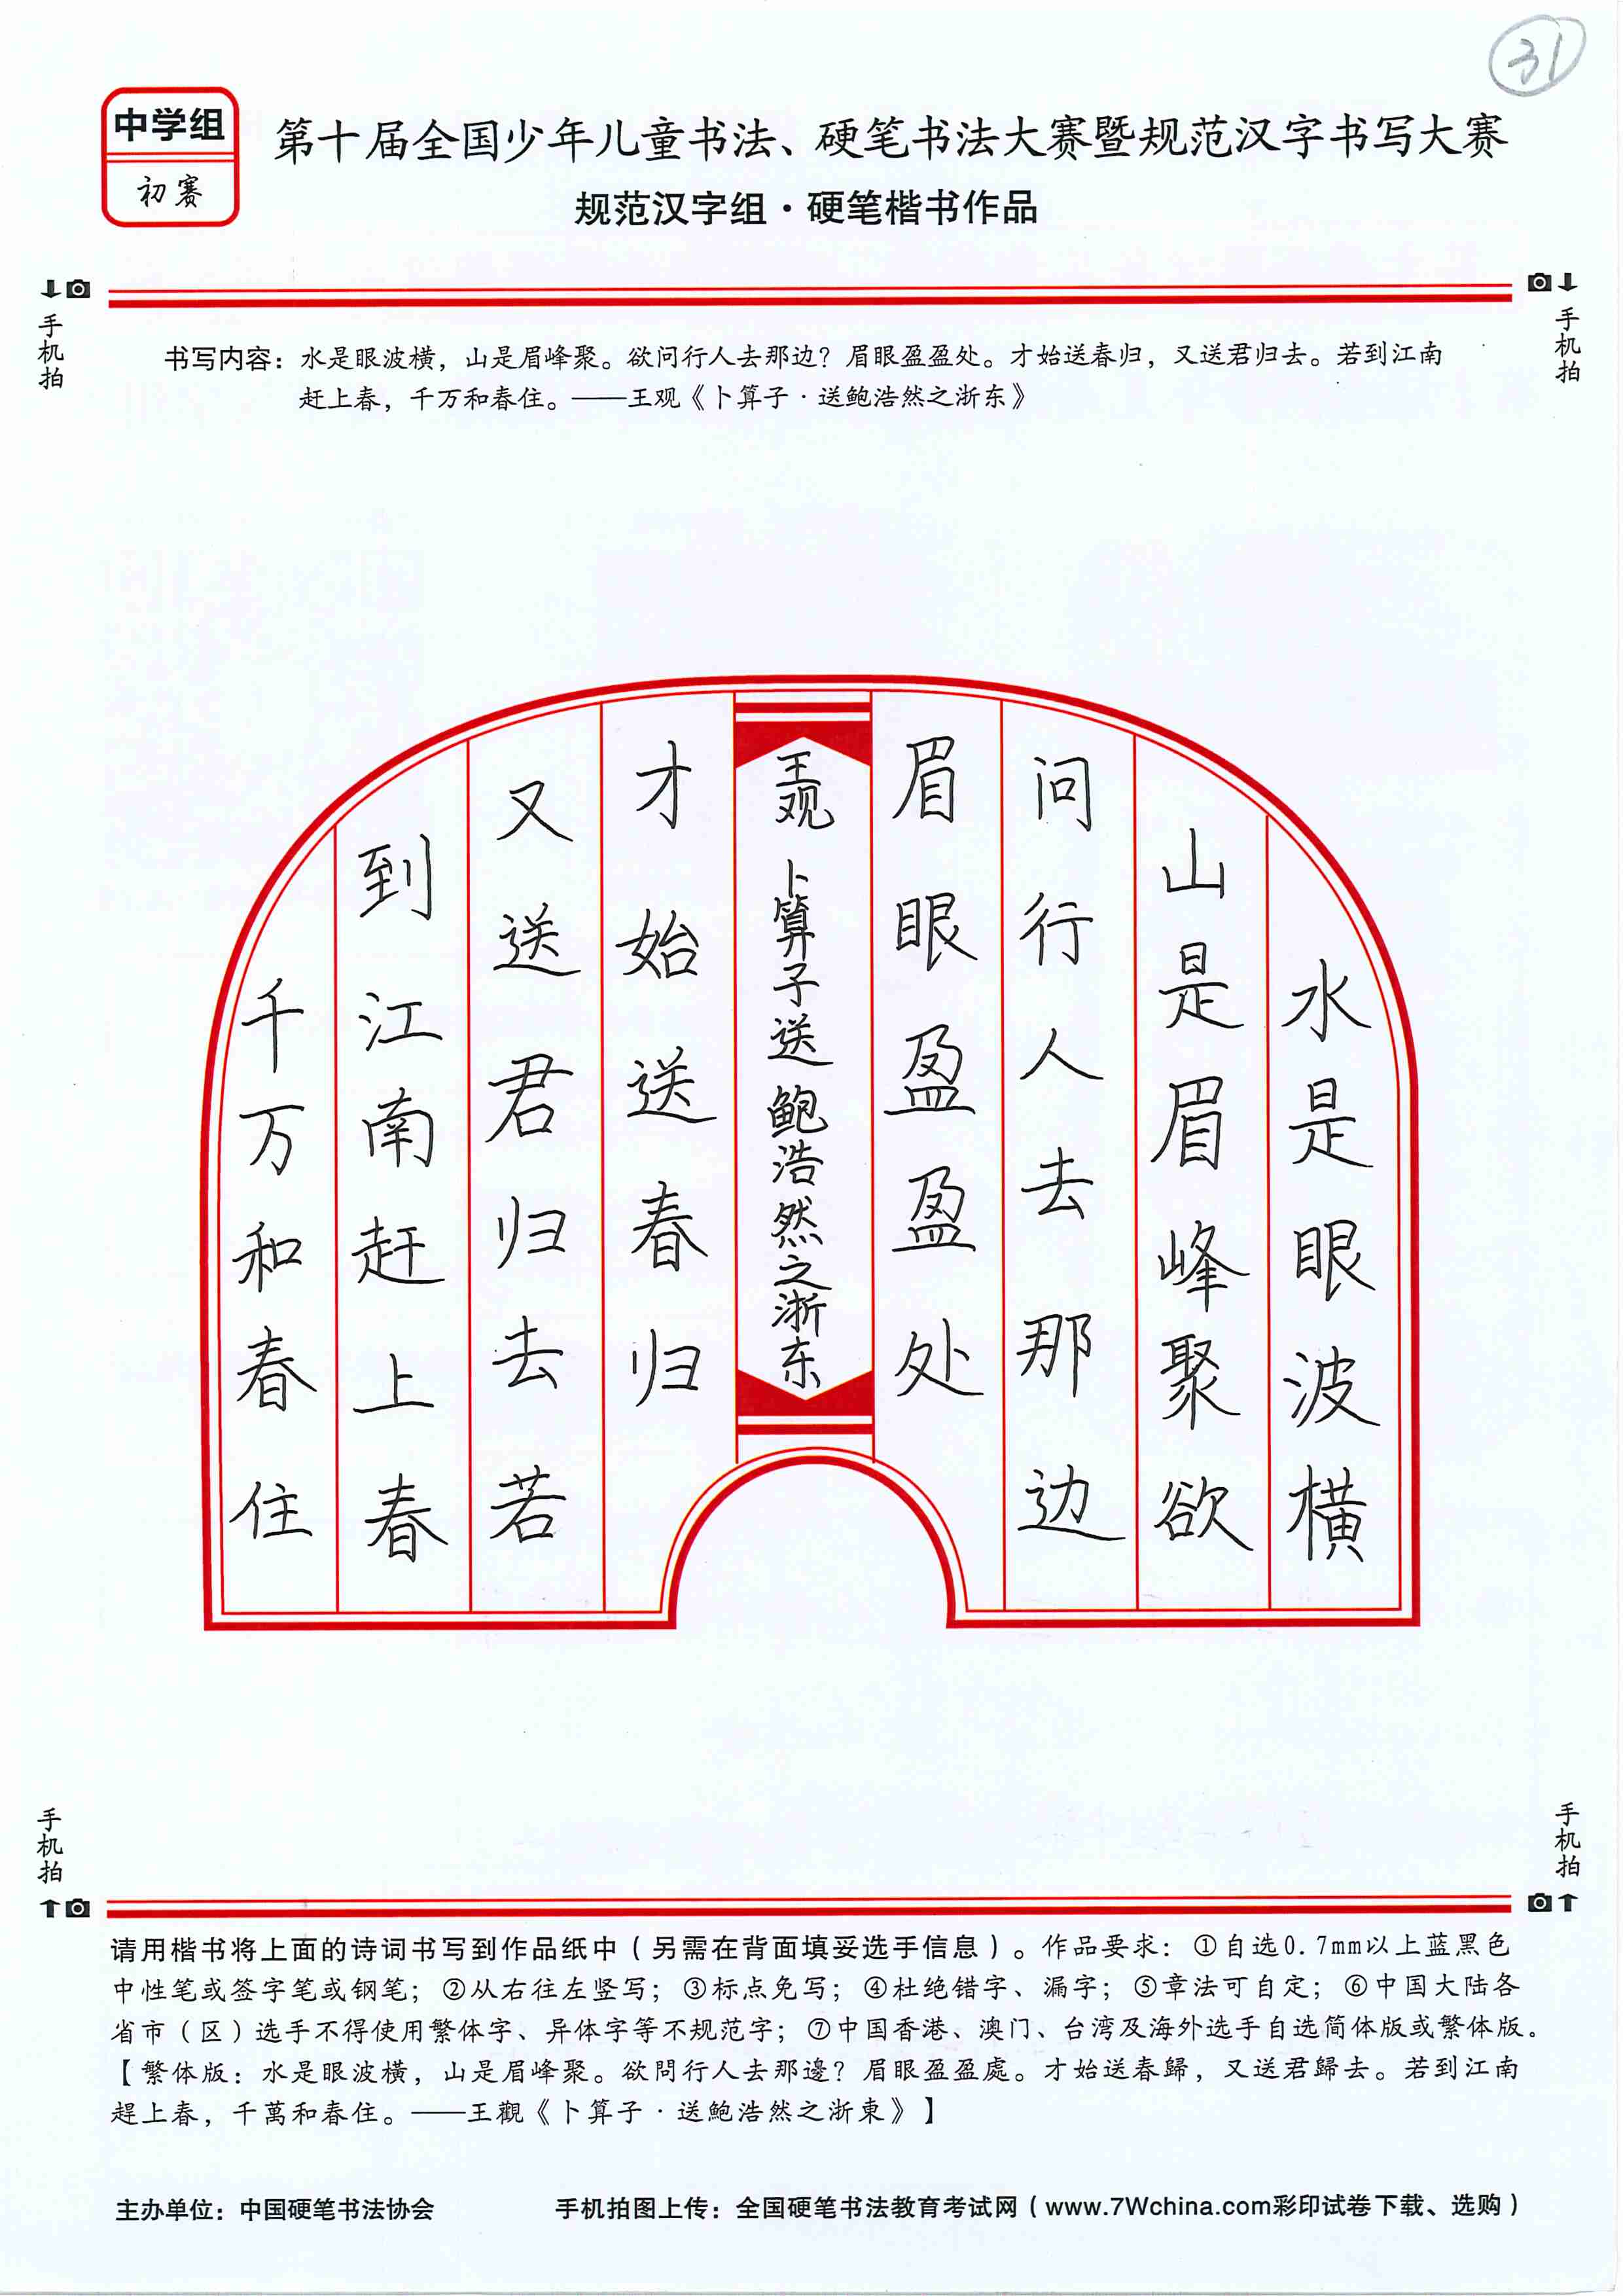 31
中学组
初赛
第十届全国少年儿童书法、硬笔书法大赛暨规范汉字书写大赛
规范汉字组·硬笔楷书作品
手机拍
手机拍
书写内容：水是眼波横，山是眉峰聚。欲问行人去那边？眉眼盈盈处。才始送春归，又送君归去。若到江南
赶上春，千万和春住。——王观《卜算子·送鲍浩然之浙东》
水是眼波横
山是眉峰聚欲
问行人去那边
眉眼盈盈处
王观 卜算子送鲍浩然之浙东
才始送春归
又送君归去若
到江南赶上春
千万和春住
手机拍
手机拍
请用楷书将上面的诗词书写到作品纸中（另需在背面填妥选手信息）。作品要求：①自选0.7mm以上蓝黑色
中性笔或签字笔或钢笔；②从右往左竖写；③标点免写；④杜绝错字、漏字；⑤章法可自定；⑥中国大陆各
省市（区）选手不得使用繁体字、异体字等不规范字；⑦中国香港、澳门、台湾及海外选手自选简体版或繁体版。
【繁体版：水是眼波橫，山是眉峰聚。欲問行人去那邊？眉眼盈盈處。才始送春歸，又送君歸去。若到江南
趕上春，千萬和春住。——王觀《卜算子·送鮑浩然之浙東》】
主办单位：中国硬笔书法协会
手机拍图上传：全国硬笔书法教育考试网（www.7Wchina.com彩印试卷下载、选购）